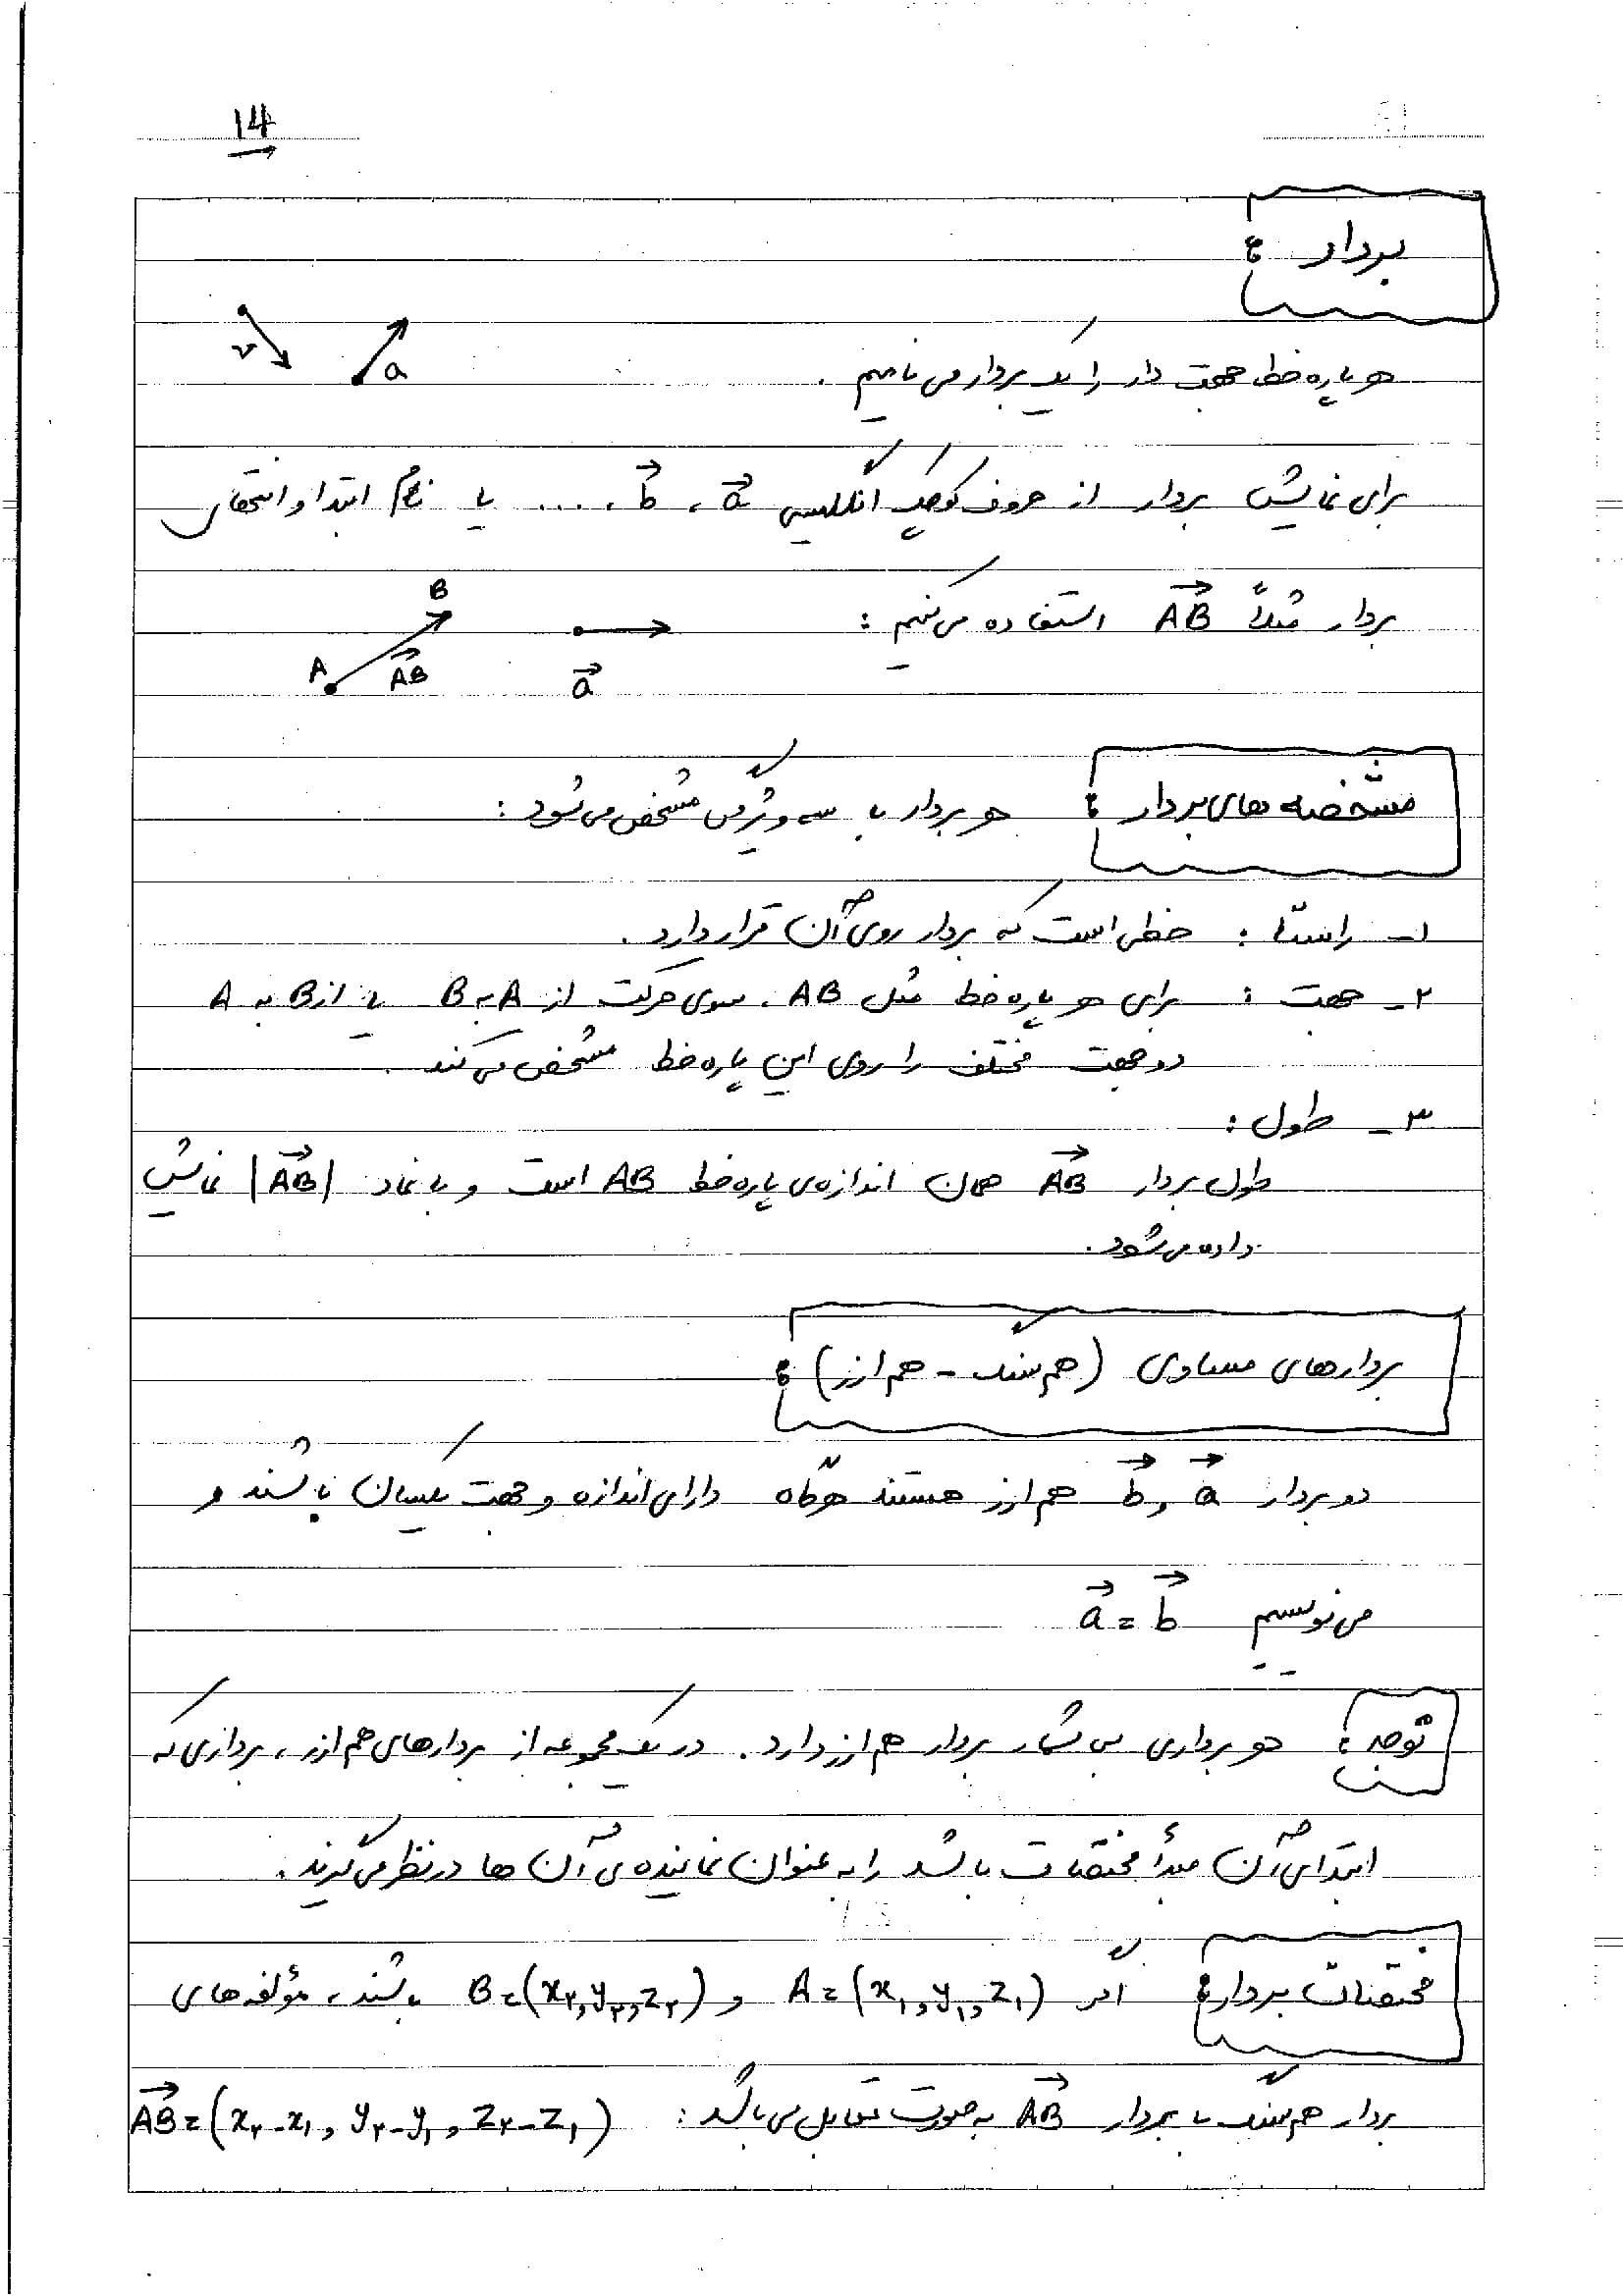 14
بردار :
هر پاره خط جهت دار را یک بردار می نامیم .
v a
برای نمایش بردار از حروف کوچک انگلیسی a⃗ ، b⃗ ، .... یا نام ابتدا و انتهای
بردار مثلاً AB⃗ استفاده می کنیم :
a⃗ A B AB⃗
مشخصه های بردار : هر بردار با سه ویژگی مشخص می شود :
۱- راستا : خطی است که بردار روی آن قرار دارد .
۲- جهت : برای هر پاره خط مثل AB ، سوی حرکت از A به B یا از B به A
دو جهت مختلف را روی این پاره خط مشخص می کند .
۳- طول :
طول بردار AB⃗ همان اندازه ی پاره خط AB است و با نماد |AB⃗| نمایش
داده می شود .
بردارهای مساوی (هم سنگ - هم ارز) :
دو بردار a⃗ و b⃗ هم ارز هستند هرگاه دارای اندازه و جهت یکسان باشند و
می نویسیم a⃗ = b⃗
توجه : هر برداری بی شمار بردار هم ارز دارد . در یک مجموعه از بردارهای هم ارز ، برداری که
ابتدای آن مبدأ مختصات باشد را به عنوان نماینده ی آن ها در نظر می گیرند .
مختصات بردار : اگر A = (x₁, y₁, z₁) و B = (x₂, y₂, z₂) باشند ، مؤلفه های
بردار هم سنگ با بردار AB⃗ به صورت مقابل می باشد : AB⃗ = (x₂ - x₁, y₂ - y₁, z₂ - z₁)